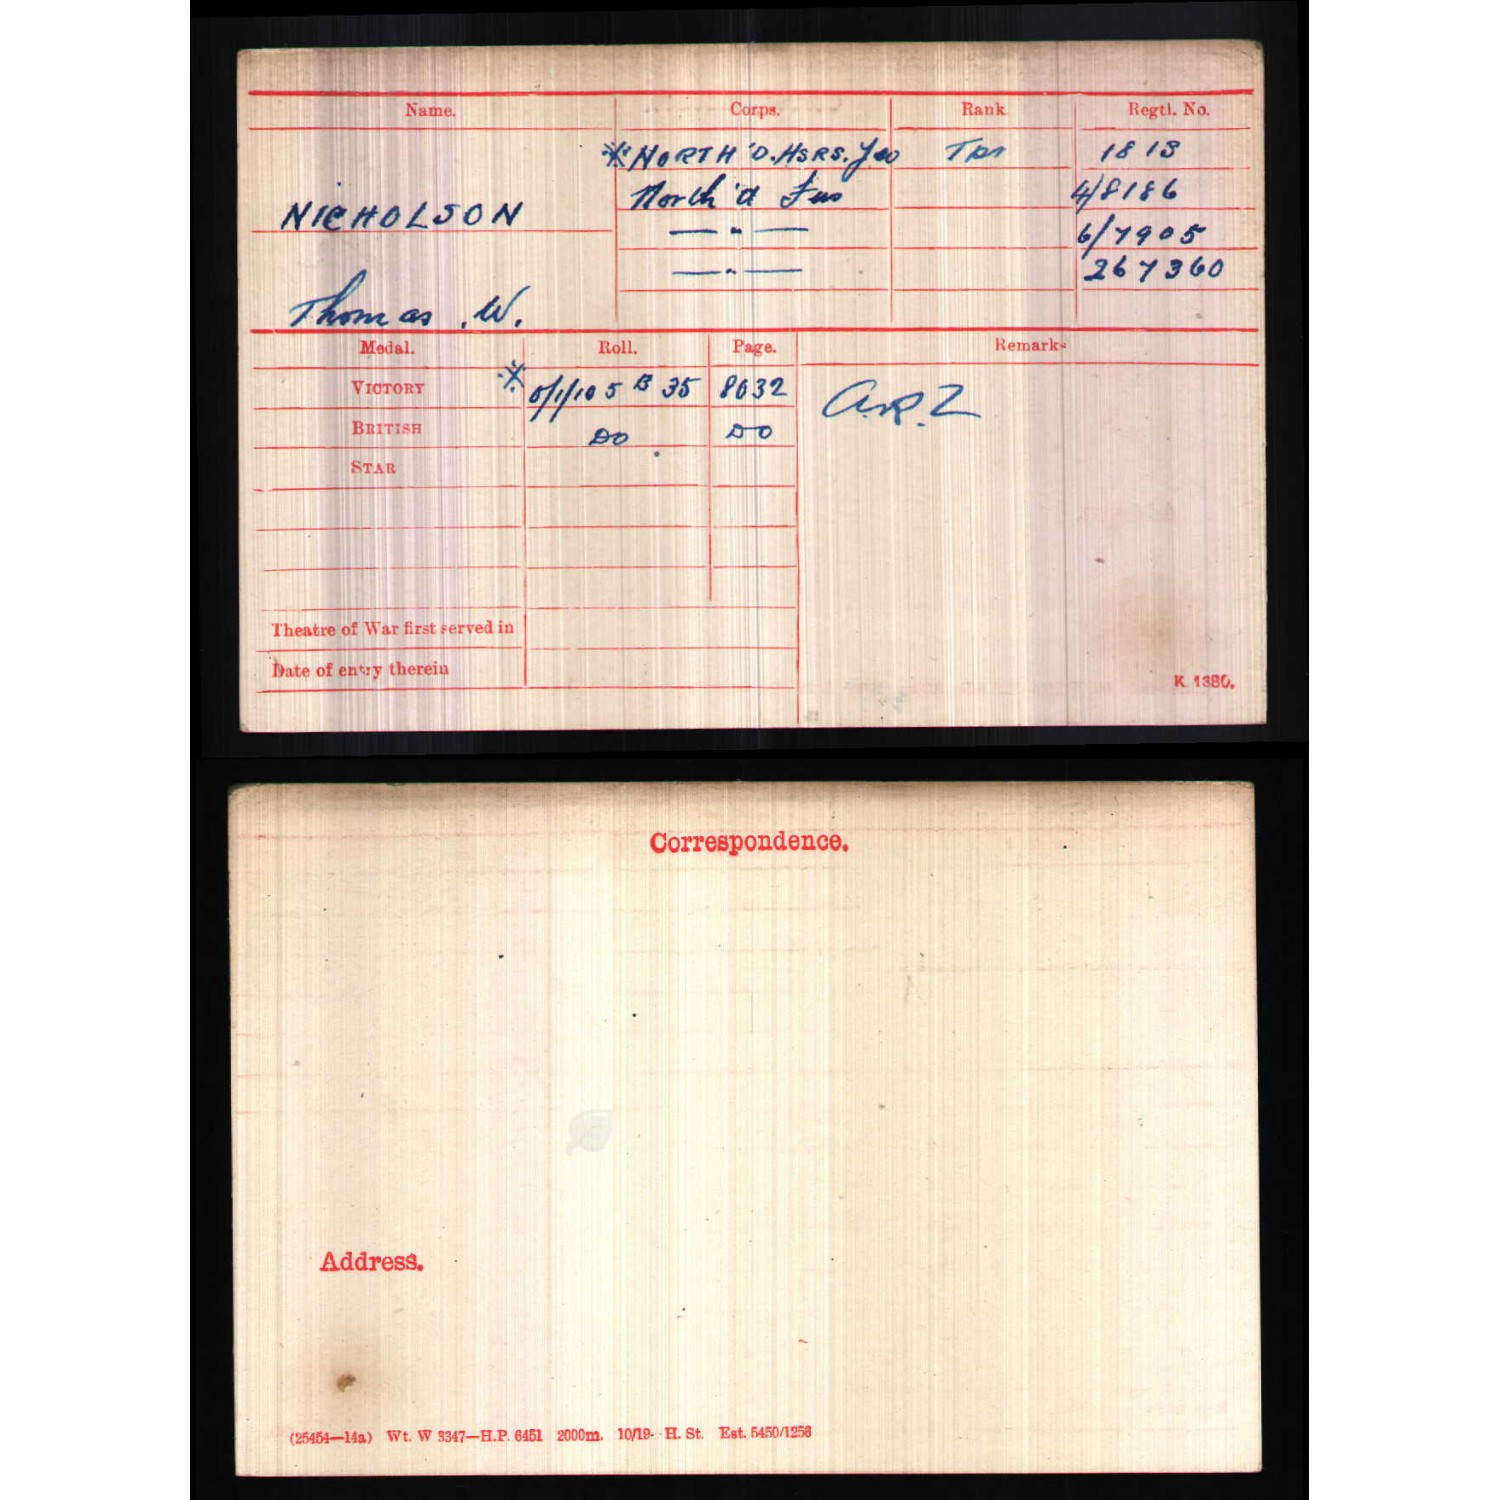 Name. Corps. Rank Regtl. No.
*NORTH'D. HSRS. Yeo Tpr 1813
North'd Fus 4/8186
NICHOLSON — " — 6/7905
— " — 267360
Thomas .W.
Medal. Roll. Page. Remarks
VICTORY * 0/1/105 B 35 8632 A.R.Z
BRITISH DO DO
STAR
Theatre of War first served in
Date of entry therein
K. 1380.
Correspondence.
Address.
(25454—14a) Wt. W 3347—H.P. 6451 2000m. 10/19- H. St. Est. 5450/1256